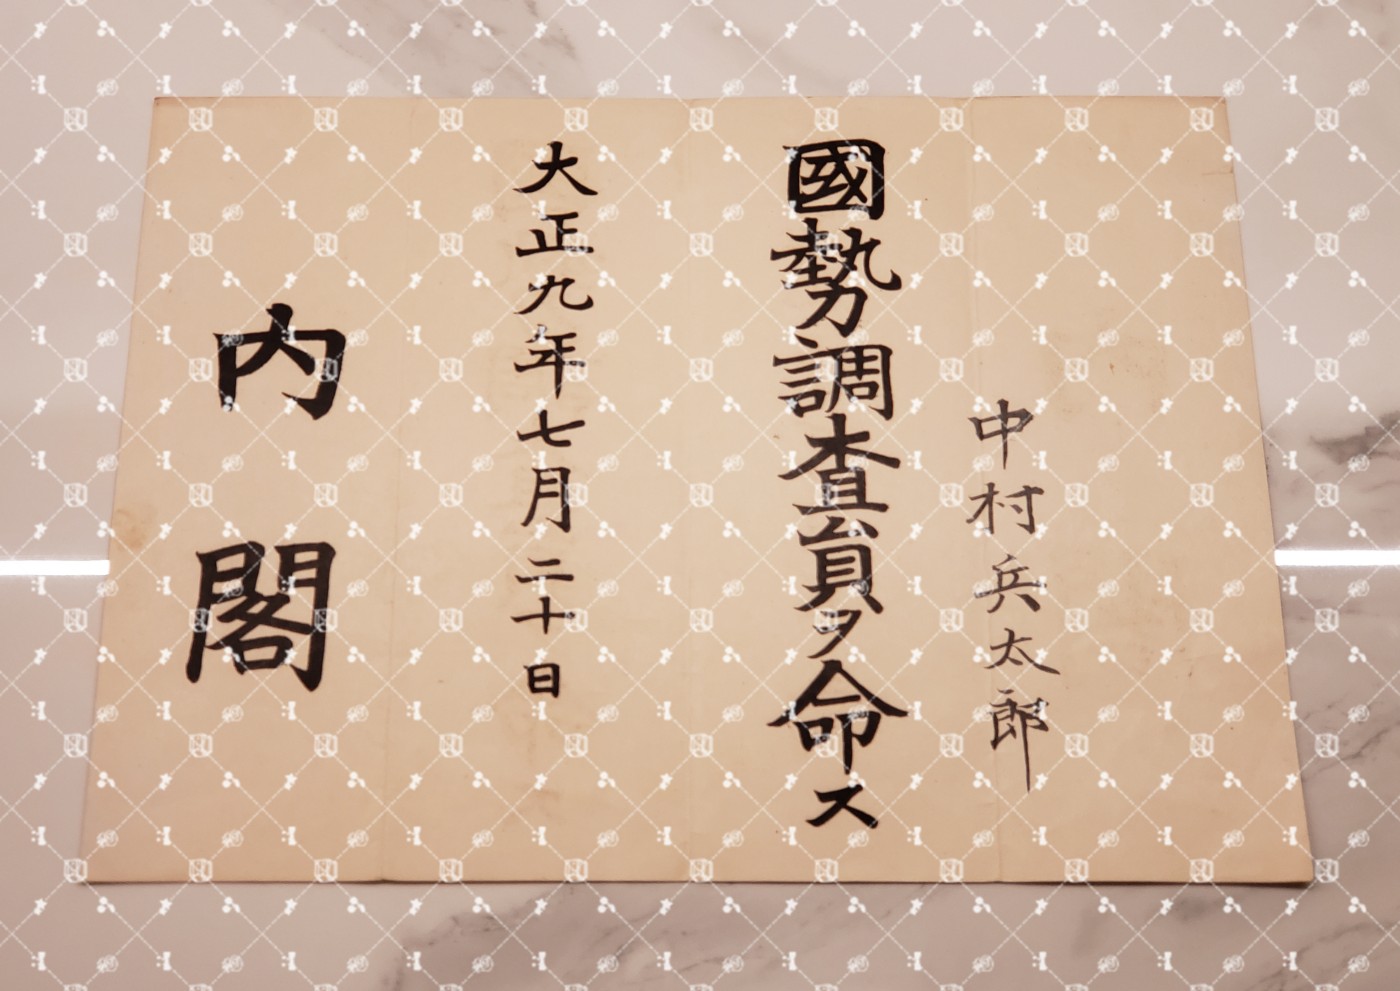 中村兵太郎
國勢調査員ヲ命ス
大正九年七月二十日
内閣